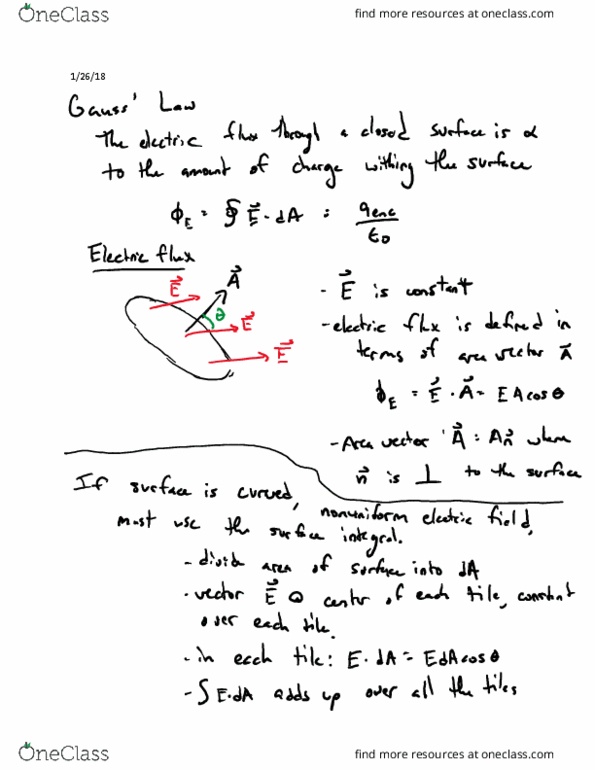 OneClass
find more resources at oneclass.com
1/26/18
Gauss' Law
The electric flux through a closed surface is α
to the amount of charge withing the surface
ϕ_E = ∮ E⃗ · dA = q_enc / ε_0
Electric flux
A⃗
E⃗
θ
E⃗
E⃗
- E⃗ is constant
- electric flux is defined in
terms of area vector A⃗
ϕ_E = E⃗ · A⃗ = EAcosθ
- Area vector A⃗ = An⃗ where
n⃗ is ⊥ to the surface
If surface is curved, nonuniform electric field,
must use the surface integral.
- divide area of surface into dA
- vector E⃗ @ center of each tile, constant
over each tile.
- in each tile: E · dA = EdAcosθ
- ∫E·dA adds up over all the tiles
OneClass
find more resources at oneclass.com